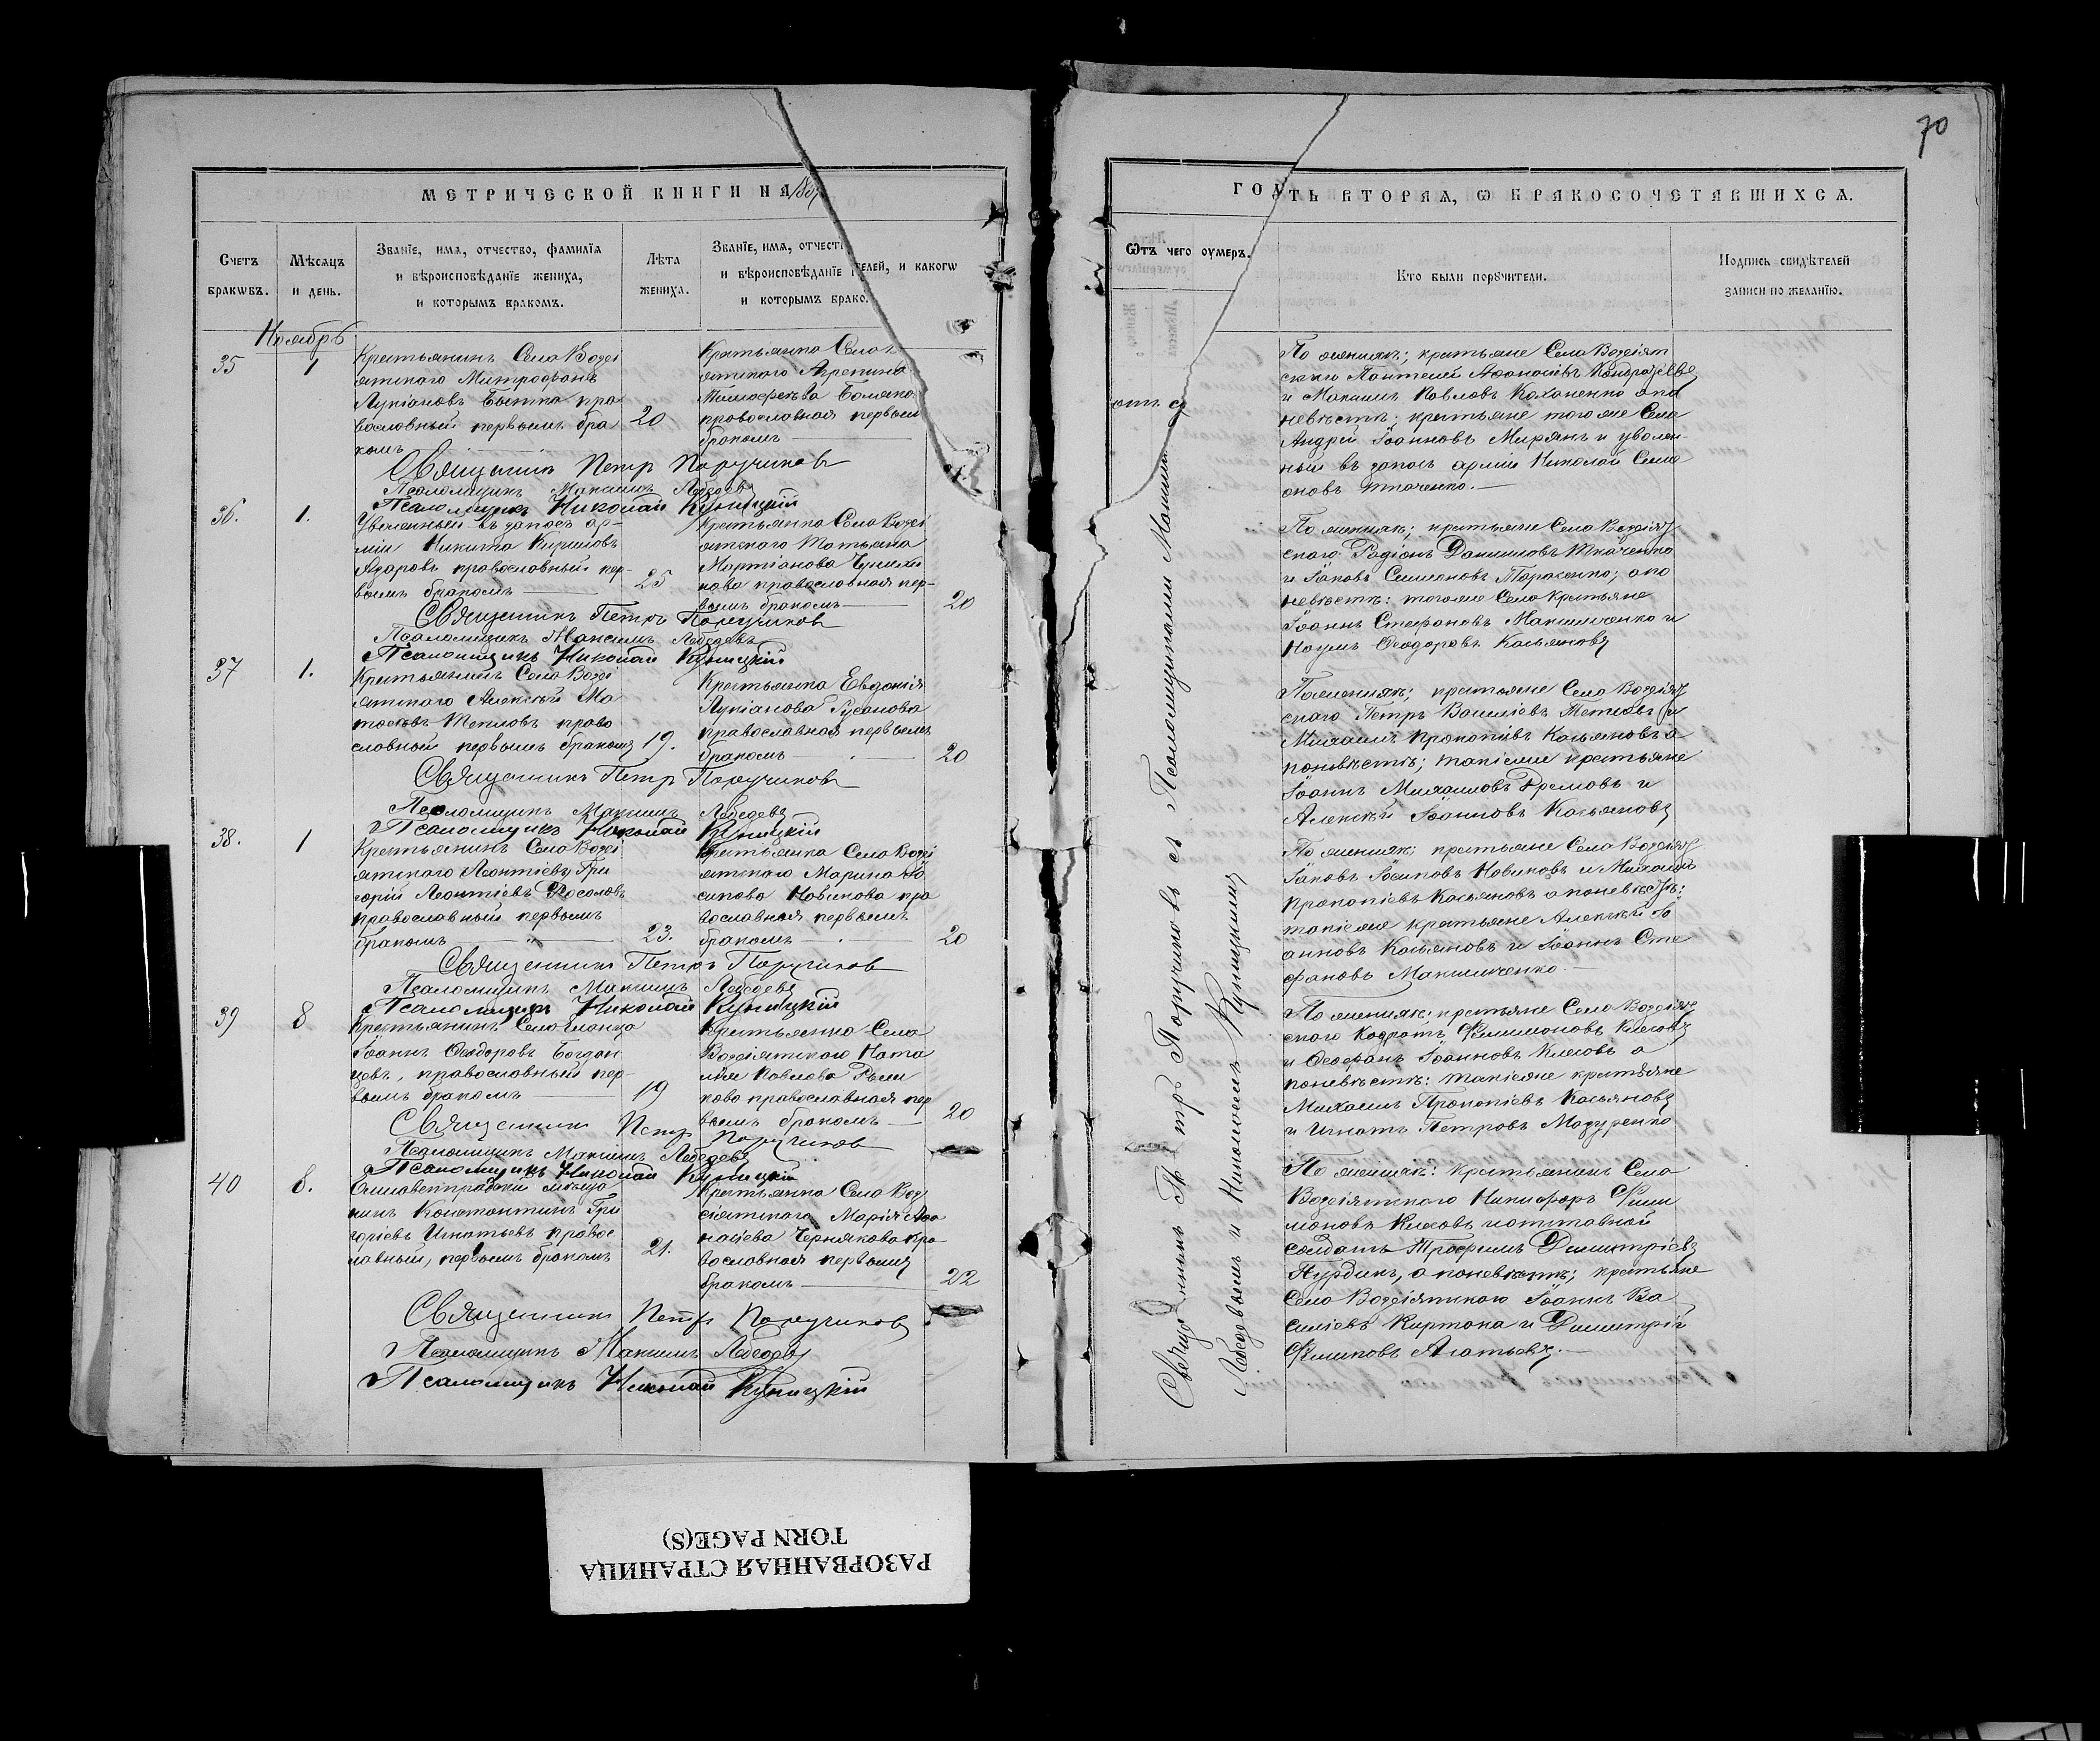 70
МЕТРИЧЕСКОЙ КНИГИ НА
ГО ТЬ ВТОРАЯ, Ѡ БРАКОСОЧЕТАВШИХСЯ.
Счетъ браковъ.
Мѣсяцъ и день.
Званіе, имя, отчество, фамилія
и вѣроисповѣданіе жениха,
и которымъ бракомъ.
Лѣта
жениха.
Званіе, имя, отчест
и вѣроисповѣданіе телей, и какогѡ
и которымъ брако.
Ѿтъ чего оумеръ.
Кто были порꙋчители.
Подпись свидѣтелей
записи по желанію.
Ноябрь
35
1
Крестьянинъ Села Возсі
ятскаго Митрофанъ
Лукіановъ пра
вославный первымъ бра
комъ
20
Крестьянка Села
ятскаго Агрепина
Тимофеева
православная первым
бракомъ
По женихѣ; крестьяне Села Возсіят
скаго Пантелей Афонасіевъ
и Максимъ Павловъ а по
невѣстѣ; крестьяне того же Села
Андрей Іоанновъ и уволен-
ный въ запасъ арміи Николай Симе
оновъ Ткаченко.
Священникъ Петръ Поручиковъ
Псаломщикъ Максимъ Лебедевъ
Псаломщикъ Николай Куницкій
36.
1.
Уволенный въ запасъ ар-
міи Никита Кириловъ
Азаровъ православный пер-
вымъ бракомъ
25
Крестьянка Села Возсі
ятскаго Татьяна
Мартіанова
православная пер-
вымъ бракомъ
20
По женихѣ; крестьяне Села Возсіят
скаго Родіонъ Даниловъ Ткаченко
и Іаковъ Симеоновъ Тарасенко; а по
невѣстѣ: тогоже Села крестьяне
Іоаннъ Стефановъ Максимченко и
Наумъ Ѳеодоровъ Касьяновъ
Священникъ Петръ Поручиковъ
Псаломщикъ Максимъ Лебедевъ
Псаломщикъ Николай Куницкій
37
1.
Крестьянинъ Села Возсі
ятскаго Алексѣй Ма
тѳеевъ Тепловъ право
славный первымъ бракомъ
19.
Крестьянка Евдокія
Лукіанова Гусакова
православная первымъ
бракомъ
20
По женихѣ; крестьяне Села Возсіят
скаго Петръ Василіевъ Тепловъ и
Михаилъ Прокопіевъ Касьяновъ а
поневѣстѣ; такіеже крестьяне
Іоаннъ Михаиловъ и
Алексѣй Іоанновъ Касьяновъ
Священникъ Петръ Поручиковъ
Псаломщикъ Максимъ Лебедевъ
Псаломщикъ Николай Куницкій
38.
1
Крестьянинъ Села Возсі
ятскаго Леонтіевъ Гри
горій Леонтіевъ
православный первымъ
бракомъ
23.
Крестьянка Села Возсі
ятскаго Марина Іо
сипова Новикова пра
вославная первымъ
бракомъ
20
По женихѣ; крестьяне Села Возсіят
Іаковъ Іосиповъ Новиковъ и Михаилъ
Прокопіевъ Касьяновъ а поневѣстѣ:
такіеже крестьяне Алексѣй Іо
анновъ Касьяновъ и Іоаннъ Сте
фановъ Максимченко.
Священникъ Петръ Поручиковъ
Псаломщикъ Максимъ Лебедевъ
Псаломщикъ Николай Куницкій
39
8
Крестьянинъ Села
Іоаннъ Ѳеодоровъ Богдан
цевъ, православный пер-
вымъ бракомъ
19
Крестьянка Села
Возсіятскаго Ната
лія Павлова
православная пер
вымъ бракомъ
20
По женихѣ: крестьяне Села Возсіят
скаго Кодратъ Филимоновъ Клюевъ
и Ѳеофанъ Іоанновъ Клюевъ а
поневѣстѣ: такіеже крестьяне
Михаилъ Прокопіевъ Касьяновъ
и Игнатъ Петровъ Мазуренко
Священникъ Петръ Поручиковъ
Псаломщикъ Максимъ Лебедевъ
Псаломщикъ Николай Куницкій
40
8.
Елисаветградскій мѣща
нинъ Константинъ Гри
горіевъ Игнатьевъ правос
лавный, первымъ бракомъ
21.
Крестьянка Села Воз
сіятскаго Марія Афа
насіева Чернякова пра
вославная первымъ
бракомъ
22
По женихѣ: Крестьянинъ Села
Возсіятскаго Никифоръ Фили
моновъ Клюевъ и отставной
солдатъ Трофимъ Димитріевъ
а поневѣстѣ; крестьяне
Села Возсіятскаго Іоаннъ Ва
силіевъ и Димитрій
Филиповъ Агатьевъ.
Священникъ Петръ Поручиковъ
Псаломщикъ Максимъ Лебедевъ
Псаломщикъ Николай Куницкій
Петръ Поручиковъ съ Псаломщиками
Лебедевымъ и Николаемъ Куницкимъ
РАЗОРВАННАЯ СТРАНИЦА
TORN PAGE(S)